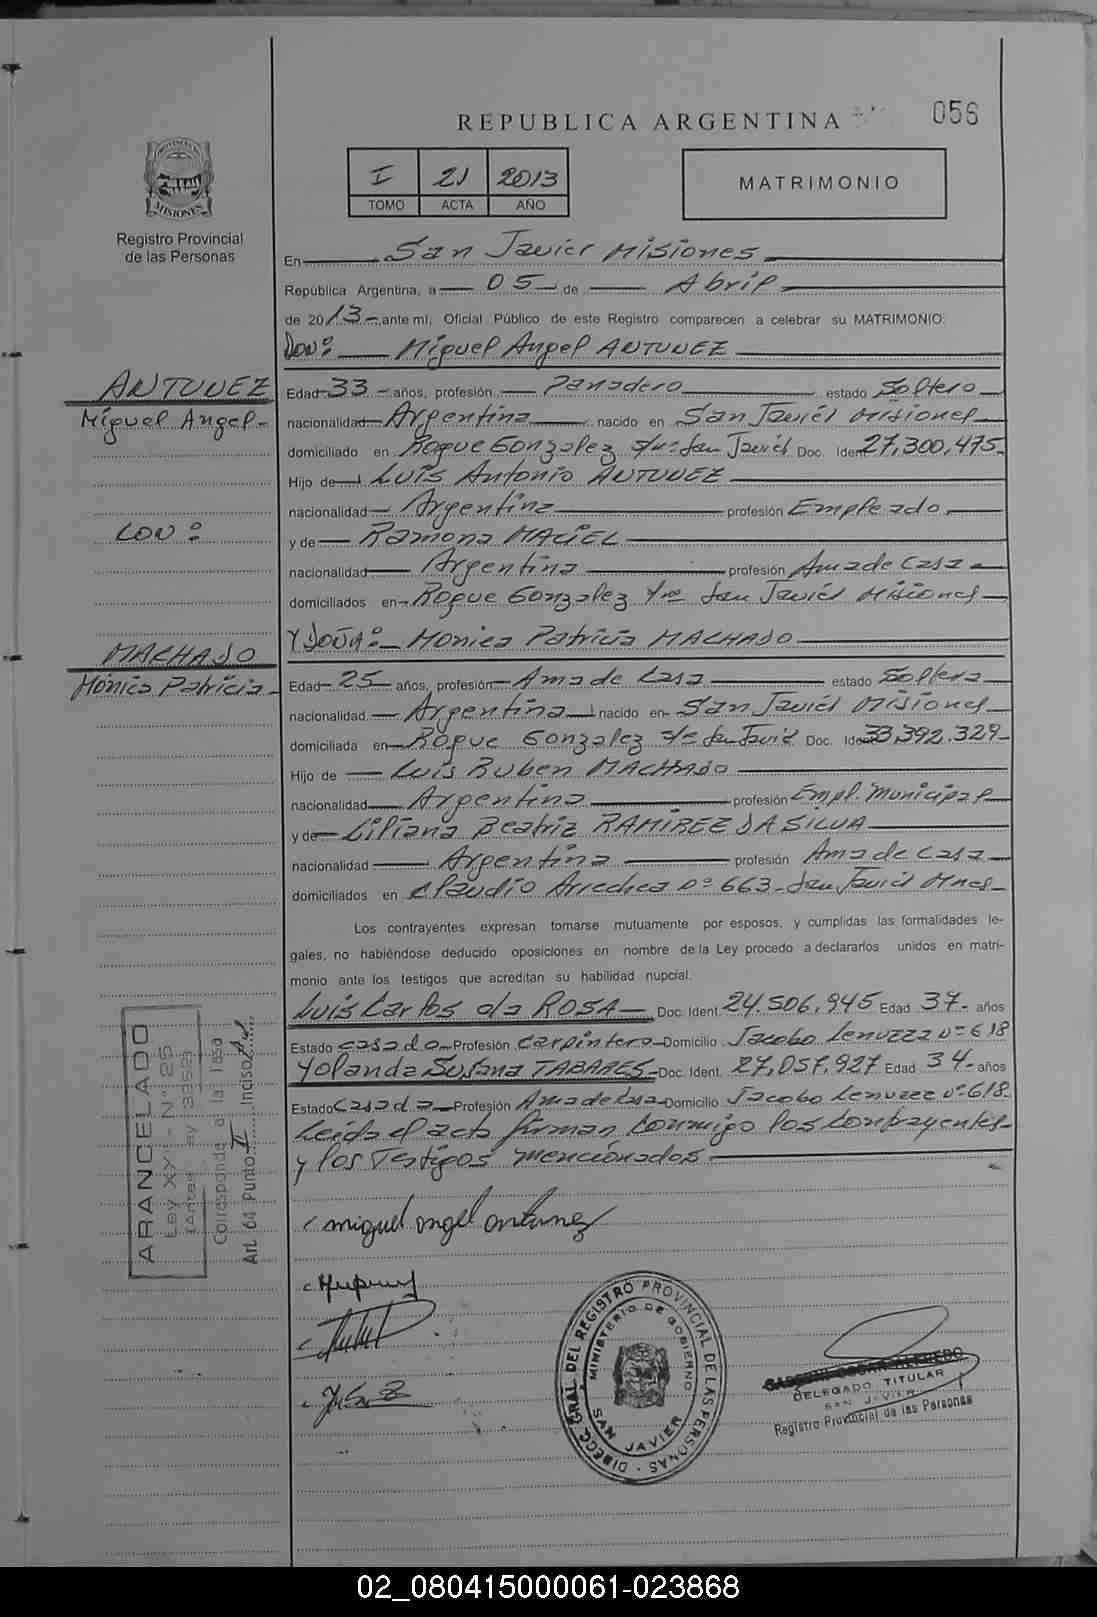 REPUBLICA ARGENTINA 056
I 21 2013
TOMO ACTA AÑO
MATRIMONIO
PROVINCIA DE
MISIONES
Registro Provincial
de las Personas
En San Javier Misiones
República Argentina, a 05 de Abril
de 2013 ante mí, Oficial Público de este Registro comparecen a celebrar su MATRIMONIO:
Don: Miguel Angel ANTUNEZ
ANTUNEZ
Miguel Angel
Edad 33 años, profesión Panadero estado Soltero
nacionalidad Argentina nacido en San Javier Misiones
domiciliado en Roque Gonzalez s/nº San Javier Doc. Iden 27.300.475
Hijo de Luis Antonio ANTUNEZ
nacionalidad Argentina profesión Empleado
CON:
y de Ramona MACIEL
nacionalidad Argentina profesión Ama de Casa
domiciliados en Roque Gonzalez s/nº San Javier Misiones
Y DOÑA: Monica Patricia MACHADO
MACHADO
Mónica Patricia
Edad 25 años, profesión Ama de Casa estado Soltera
nacionalidad Argentina nacido en San Javier Misiones
domiciliada en Roque Gonzalez s/n San Javier Doc. Iden 33.392.329
Hijo de Luis Ruben MACHADO
nacionalidad Argentina profesión Empl. Municipal
y de Liliana Beatriz RAMIREZ DA SILVA
nacionalidad Argentina profesión Ama de Casa
domiciliados en Claudio Arrechea nº 663 - San Javier Mnes
Los contrayentes expresan tomarse mutuamente por esposos, y cumplidas las formalidades le-
gales, no habiéndose deducido oposiciones en nombre de la Ley procedo a declararlos unidos en matri-
monio ante los testigos que acreditan su habilidad nupcial.
Luis Carlos da ROSA Doc. Ident. 24.506.945 Edad 37 años
Estado casado Profesión Carpintero Domicilio Jacobo Lenuzza nº 618
Yolanda Susana TABARES Doc. Ident. 27.057.927 Edad 34 años
Estado Casada Profesión Ama de Casa Domicilio Jacobo Lenuzza nº 618
Leida el acta firman conmigo los contrayentes
y los Testigos mencionados
ARANCELADO
Ley XV - Nº 25
(Antes Ley 3352)
Corresponde a la Tasa
Art. 64 Punto I Inciso
miguel angel antunez
DIRECC. GRAL. DEL REGISTRO PROVINCIAL DE LAS PERSONAS
MINISTERIO DE GOBIERNO
SAN JAVIER
DELEGADO TITULAR
SAN JAVIER
Registro Provincial de las Personas
02_080415000061-023868